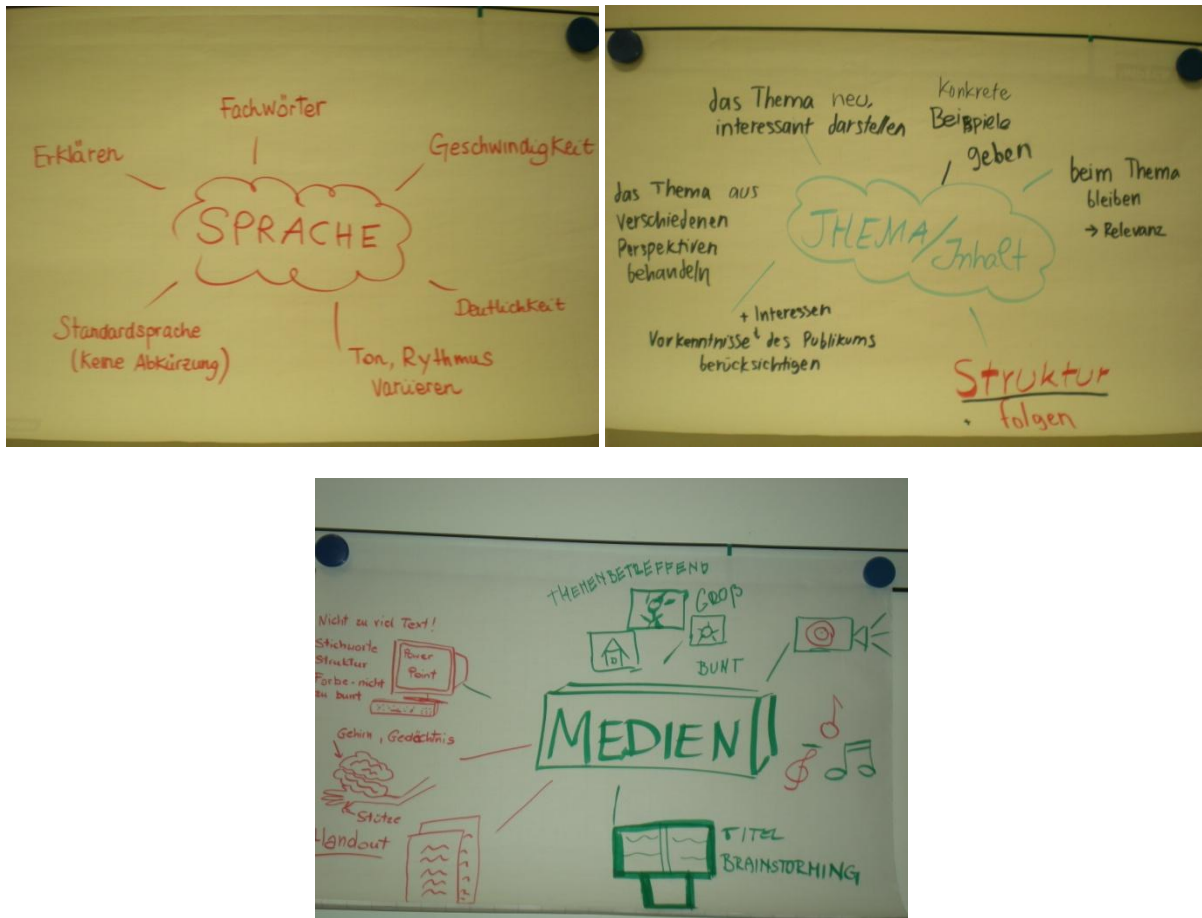 Fachwörter
Erklären
Geschwindigkeit
SPRACHE
Deutlichkeit
Standardsprache
(Keine Abkürzung)
Ton, Rythmus
Variieren
das Thema neu,
interessant darstellen
Konkrete
Beispiele
geben
beim Thema
bleiben
→ Relevanz
das Thema aus
verschiedenen
Perspektiven
behandeln
THEMA/Inhalt
+ Interessen
Vorkenntnisse des Publikums
berücksichtigen
Struktur
folgen
THEMENBETREFFEND
GROß
BUNT
Nicht zu viel Text!
Stichworte
Struktur
Farbe - nicht
zu bunt
Power
Point
MEDIEN
Gehirn, Gedächtnis
Stütze
Handout
TITEL
BRAINSTORMING